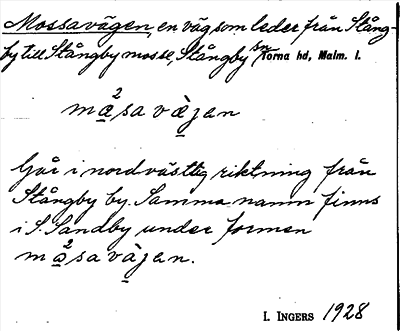 Mossavägen, en väg som leder från Stång-
by till Stångby mosse, Stångby sn Torna hd, Malm. l.
må²savą̀jan
Går i nordvästlig riktning från
Stångby by. Samma namn finns
i S. Sandby under formen
må²savàjan.
I. INGERS 1928